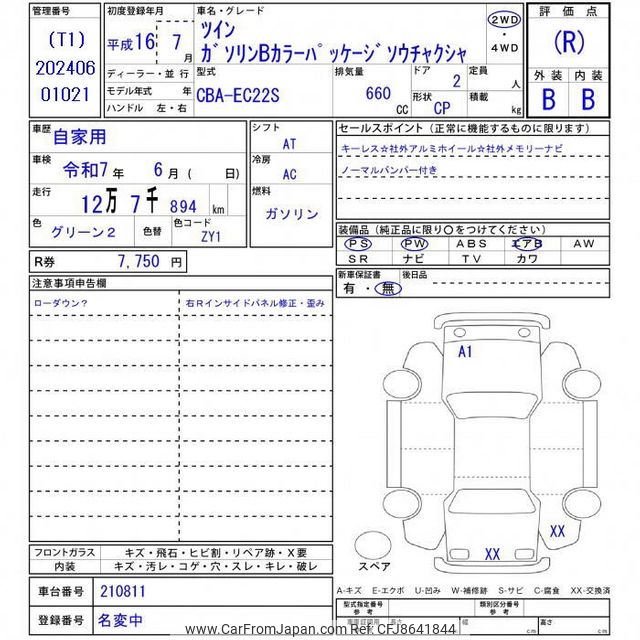 管理番号
(T1)
202406
01021
初度登録年月
平成16 7月
ディーラー・並行
モデル年式 年
ハンドル 左・右
車名・グレード
ツイン
ガソリンBカラーパッケージソウチャクシャ
2WD
・
4WD
型式
CBA-EC22S
排気量
660 CC
ドア 2
形状 CP
定員 人
積載 kg
評価点
(R)
外装 内装
B B
車歴
自家用
車検
令和7年 6月 ( 日)
走行
12万 7千 894 km
色
グリーン2
色替
色コード
ZY1
シフト
AT
冷房
AC
燃料
ガソリン
R券 7,750 円
セールスポイント (正常に機能するものに限ります)
キーレス☆社外アルミホイール☆社外メモリーナビ
ノーマルバンパー付き
装備品 (純正品に限り〇をつけてください)
PS PW ABS エアB AW
SR ナビ TV カワ
新車保証書
有・無
後日品
注意事項申告欄
ローダウン?
右Rインサイドパネル修正・歪み
A1
XX
XX
スペア
フロントガラス キズ・飛石・ヒビ割・リペア跡・X要
内装 キズ・汚レ・コゲ・穴・スレ・キレ・破レ
A-キズ E-エクボ U-凹み W-補修跡 S-サビ C-腐食 XX-交換済
車台番号 210811
登録番号 名変中
型式指定番号
類別区分番号
車両総荷用
長さ cm
幅 cm
高さ cm
www.CarFromJapan.com Ref: CFJ8641844